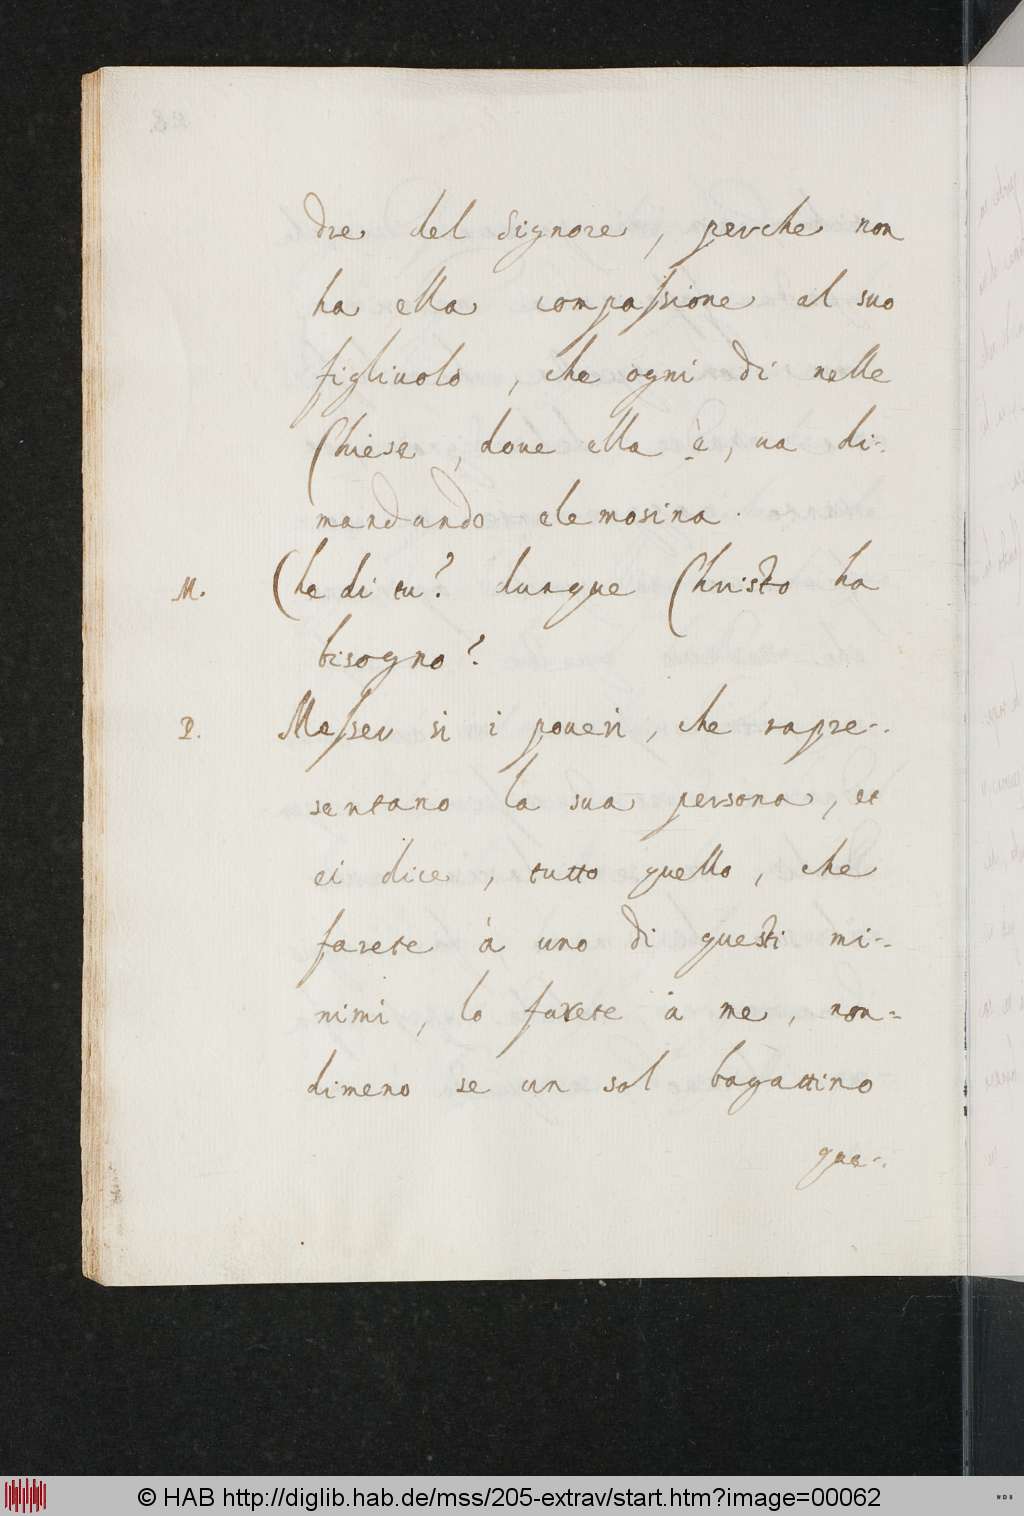 dre del Signore, perche non
ha ella compassione al suo
figliuolo, che ogni di nelle
Chiese, doue ella è, ua di-
mandando elemosina.
M. Che di tu? dunque Christo ha
bisogno?
P. Messer si i poueri, che rapre-
sentano la sua persona, et
ei dice, tutto quello, che
farete à uno di questi mi-
nimi, lo farete à me, non=
dimeno se un sol bagattino
que-
© HAB http://diglib.hab.de/mss/205-extrav/start.htm?image=00062